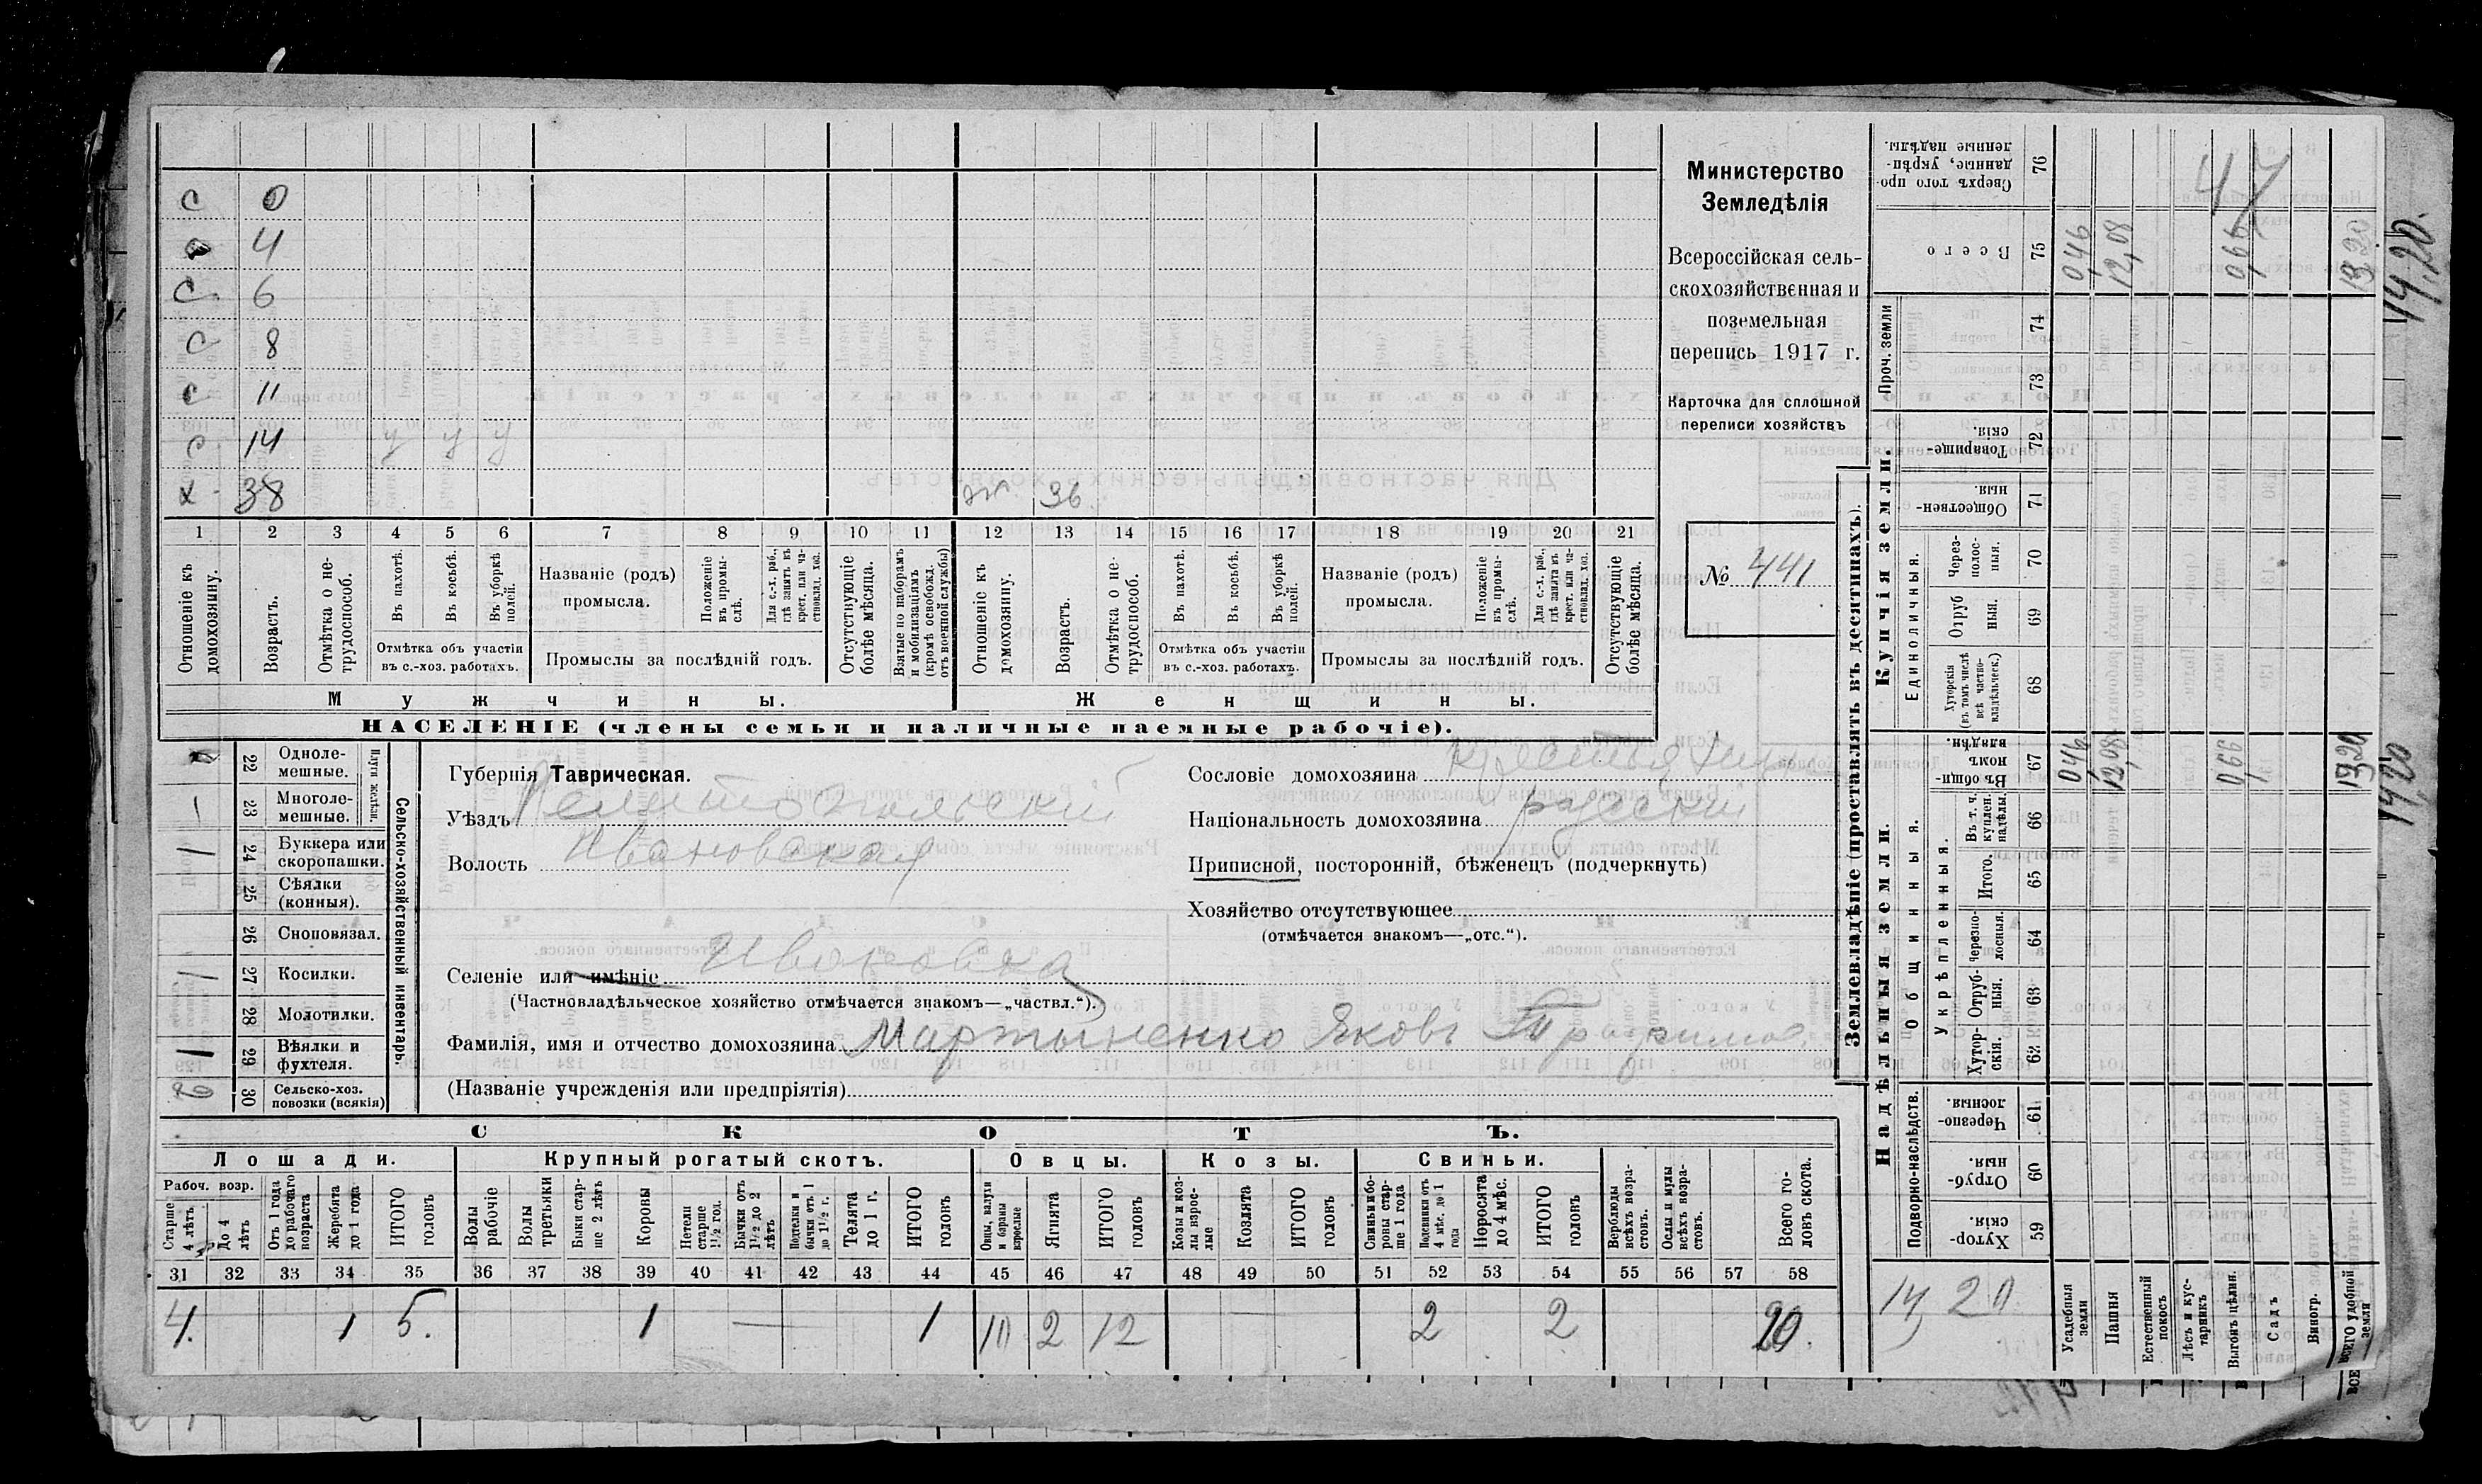 Министерство
Земледѣлія
Всероссійская сель-
скохозяйственная и
поземельная
перепись 1917 г.
Карточка для сплошной
переписи хозяйствъ
№ 441
С 0
4
С 6
С 8
С 11
С 14 у у у
х 38 ж 36
1 2 3 4 5 6 7 8 9 10 11 12 13 14 15 16 17 18 19 20 21
Отношеніе къ домохозяину.
Возрастъ.
Отмѣтка о не-трудоспособ.
Въ пахотѣ.
Въ косьбѣ.
Въ уборкѣ полей.
Отмѣтка объ участіи въ с.-хоз. работахъ.
Названіе (родъ) промысла.
Положеніе въ промы-слѣ.
Для с.-х. раб., гдѣ занятъ въ крест. или ча-стновлад. хоз.
Промыслы за послѣдній годъ.
Отсутствующіе болѣе мѣсяца.
Взятые по наборамъ и мобилизаціямъ (кромѣ освобожд. отъ военной службы)
Отношеніе къ домохозяину.
Возрастъ.
Отмѣтка о не-трудоспособ.
Въ пахотѣ.
Въ косьбѣ.
Въ уборкѣ полей.
Отмѣтка объ участіи въ с.-хоз. работахъ.
Названіе (родъ) промысла.
Положеніе въ промы-слѣ.
Для с.-х. раб., гдѣ занята въ крест. или ча-стновлад. хоз.
Промыслы за послѣдній годъ.
Отсутствующіе болѣе мѣсяца.
Мужчины. Женщины.
НАСЕЛЕНІЕ (члены семьи и наличные наемные рабочіе).
Сельско-хозяйственный инвентарь.
Плуги желѣзн.
22 Одноле-мешные.
— 23 Многоле-мешные.
1 24 Буккера или скоропашки.
25 Сѣялки (конныя).
26 Сноповязал.
1 27 Косилки.
28 Молотилки.
1 29 Вѣялки и фухтеля.
30 Сельско-хоз. повозки (всякія)
Губернія Таврическая.
Уѣздъ Мелитопольскій
Волость Ивановская
Селеніе или имѣніе Ивановка
(Частновладѣльческое хозяйство отмѣчается знакомъ—„частвл.“).
Фамилія, имя и отчество домохозяина Мартыненко Яковъ
(Названіе учрежденія или предпріятія)
Сословіе домохозяина крестьянинъ
Національность домохозяина русскій
Приписной, посторонній, бѣженецъ (подчеркнуть)
Хозяйство отсутствующее
(отмѣчается знакомъ—„отс.“).
СКОТЪ.
Лошади. Крупный рогатый скотъ. Овцы. Козы. Свиньи.
Рабоч. возр.
Старше 4 лѣтъ
До 4 лѣтъ
Отъ 1 года до рабочаго возраста
Жеребята до 1 года
ИТОГО головъ
Волы рабочіе
Волы третьяки
Быки стар-ше 2 лѣтъ
Коровы
Нетели старше 1½ год.
Бычки отъ 1½ до 2 лѣтъ
Подтелки и бычки отъ 1 до 1½ г.
Телята до 1 г.
ИТОГО головъ
Овцы, валухи и бараны взрослые
Ягнята
ИТОГО головъ
Козы и коз-лы взрос-лые
Козлята
ИТОГО головъ
Свиньи и бо-ровы стар-ше 1 года
Подсвинки отъ 4 мѣс. до 1 года
Поросята до 4 мѣс.
ИТОГО головъ
Верблюды всѣхъ возра-стовъ.
Ослы и мулы всѣхъ возра-стовъ.
Всего го-ловъ скота.
31 32 33 34 35 36 37 38 39 40 41 42 43 44 45 46 47 48 49 50 51 52 53 54 55 56 57 58
4. 1 5. 1 — 1 10 2 12 — 2 2 20.
Землевладѣніе (проставлять въ десятинахъ).
Надѣльныя земли. Купчія земли. Проч. земли
Подворно-наслѣдств. Общинныя. Укрѣпленныя. Единоличныя.
Хутор-скія. 59
Отруб-ныя. 60
Черезпо-лосныя. 61
Хутор-скія. 62
Отруб-ныя. 63
Черезпо-лосныя. 64
Итого. 65
Въ т. ч. куплен. надѣлы. 66
Въ общи-номъ владѣн. 67
Хуторскія (въ томъ числѣ всѣ частно-владѣльческ.) 68
Отруб ныя. 69
Через-полос-ныя. 70
Обществен-ныя. 71
Товарище-скія. 72
73
74
Всего 75
Сверхъ того про-данные, укрѣп-ленные надѣлы. 76
Усадебныя земли 0,46 0,46
Пашня 12,08 12,08
Естественный покосъ
Лѣсъ и кус-тарникъ
Выгонъ цѣлин. 0,66 0,66
Садъ
Виногр.
ВСЕГО удобной земли 13,20 13,20
14,20 14,20
14,20
47